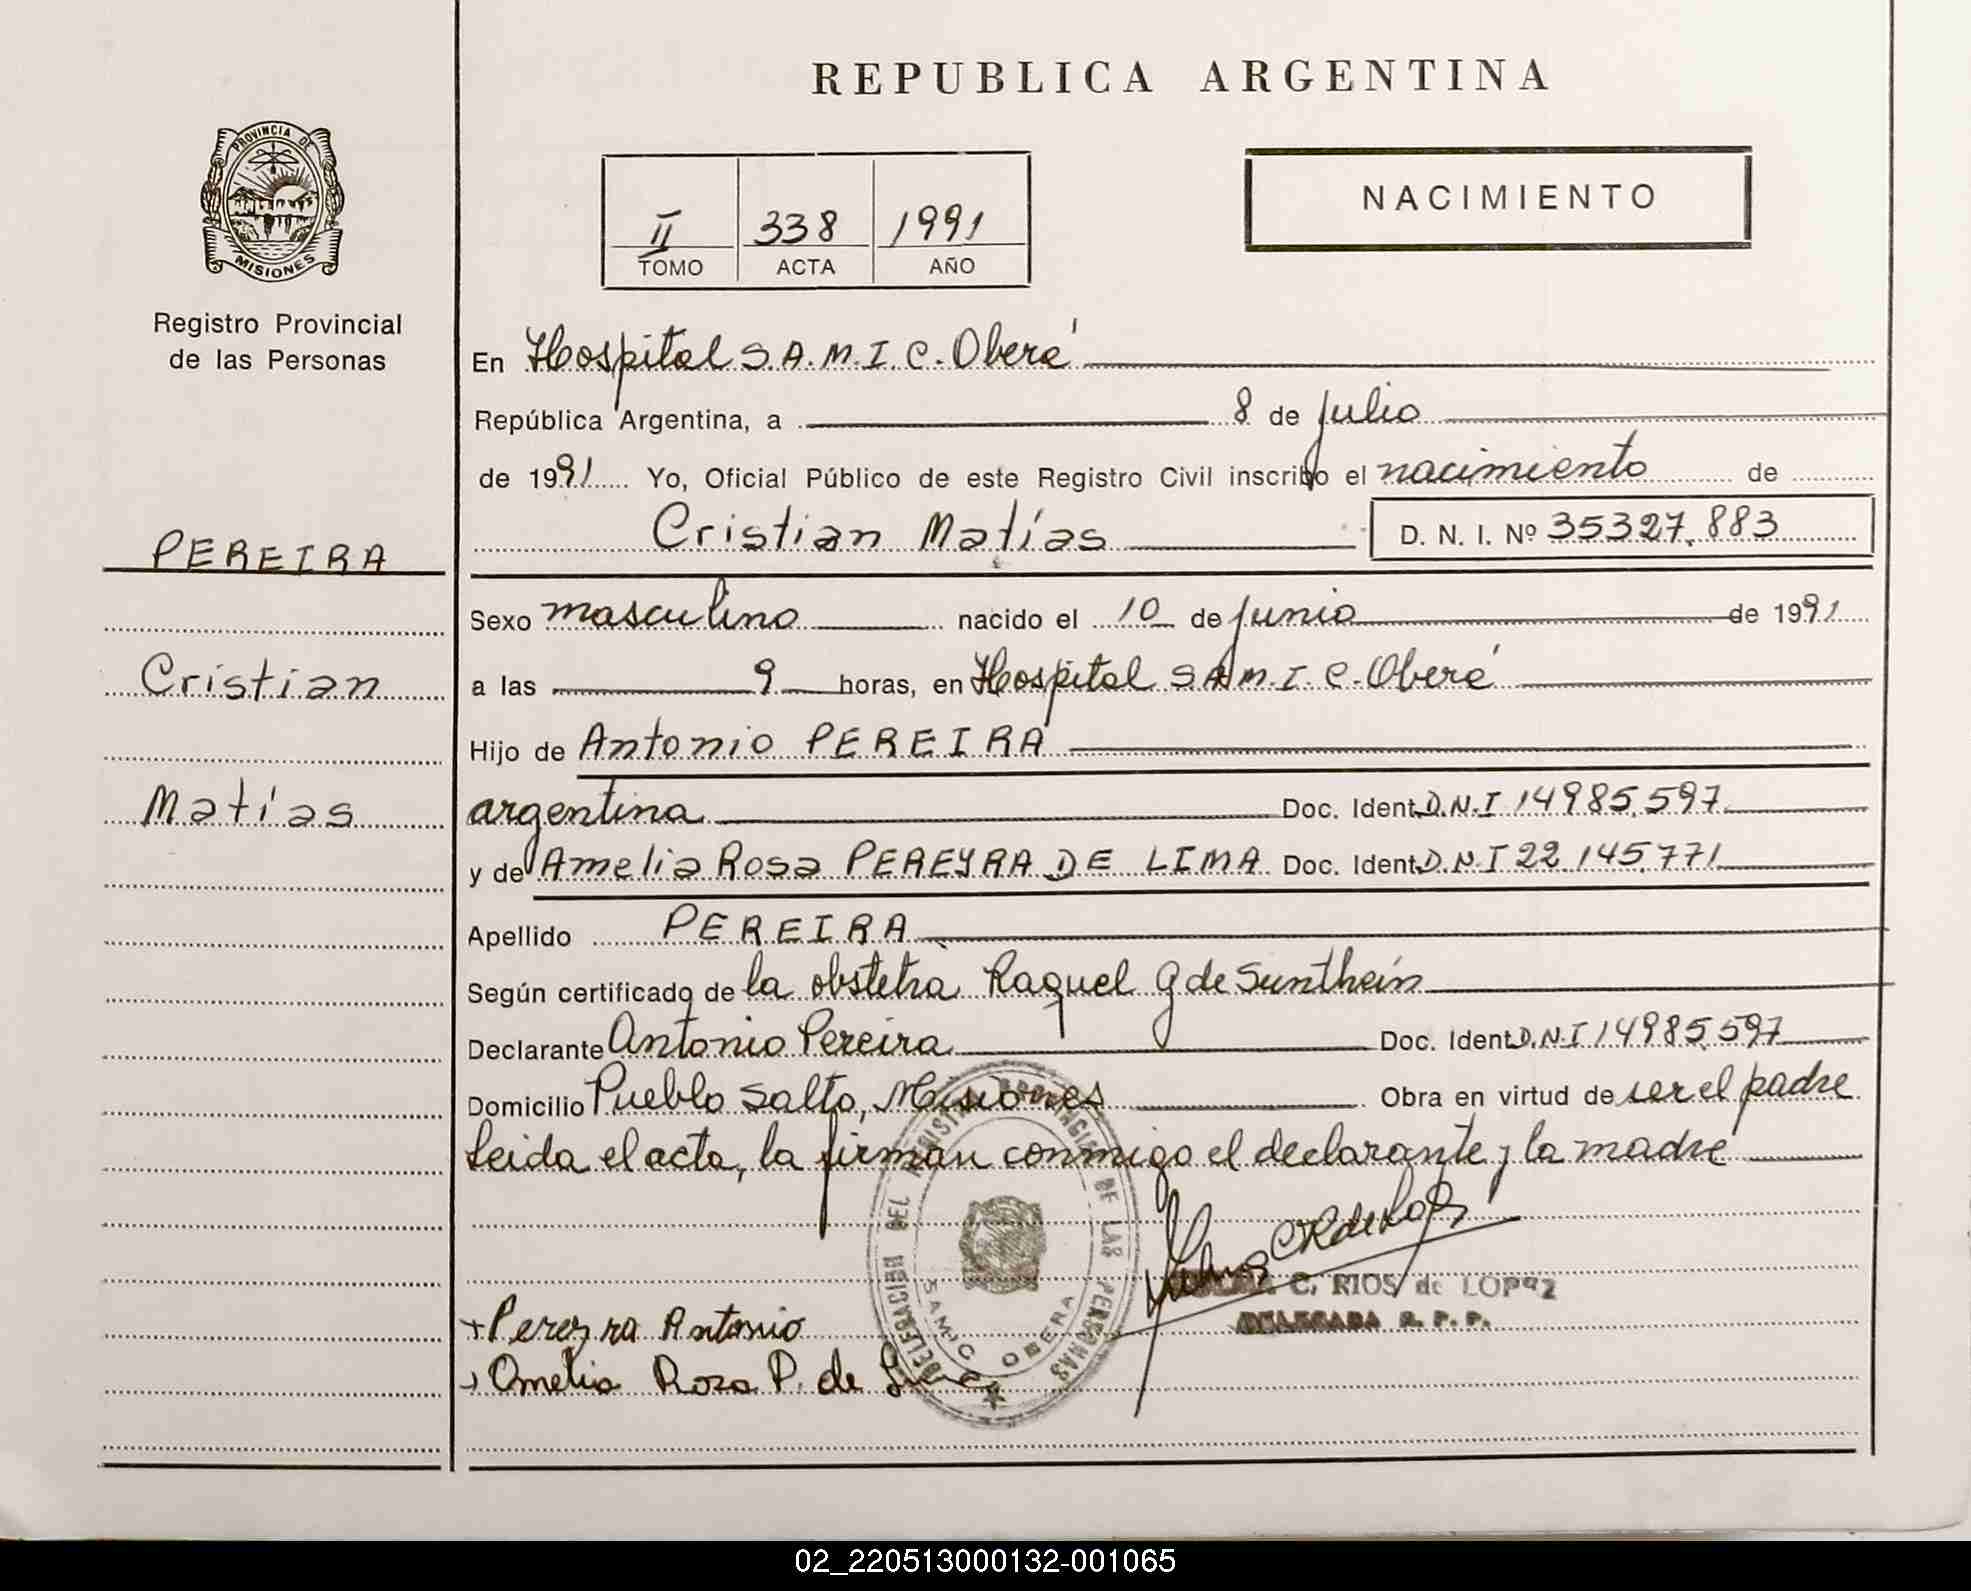 REPUBLICA ARGENTINA
PROVINCIA DE
MISIONES
Registro Provincial
de las Personas
NACIMIENTO
II 338 1991
TOMO ACTA AÑO
En Hospital S.A.M.I.C. Oberá
República Argentina, a 8 de julio
de 1991 Yo, Oficial Público de este Registro Civil inscribo el nacimiento de
Cristian Matías D. N. I. Nº 35327.883
PEREIRA
Cristian
Matías
Sexo masculino nacido el 10 de junio de 1991
a las 9 horas, en Hospital S.A.M.I.C. Oberá
Hijo de Antonio PEREIRA
argentina Doc. Ident. D.N.I 14985.597
y de Amelia Rosa PEREYRA DE LIMA Doc. Ident. D.N.I 22.145.771
Apellido PEREIRA
Según certificado de la obstetra Raquel G de Sunthein
Declarante Antonio Pereira Doc. Ident. D.N.I 14985.597
Domicilio Pueblo Salto, Misiones Obra en virtud de ser el padre
Leida el acta, la firman conmigo el declarante y la madre
C. RIOS de LOPEZ
DELEGADA R. P. P.
Pereyra Antonio
Amelia Rosa P. de Lima
DELEGACION DEL REGISTRO PROVINCIAL DE LAS PERSONAS
SAMIC OBERA
02_220513000132-001065